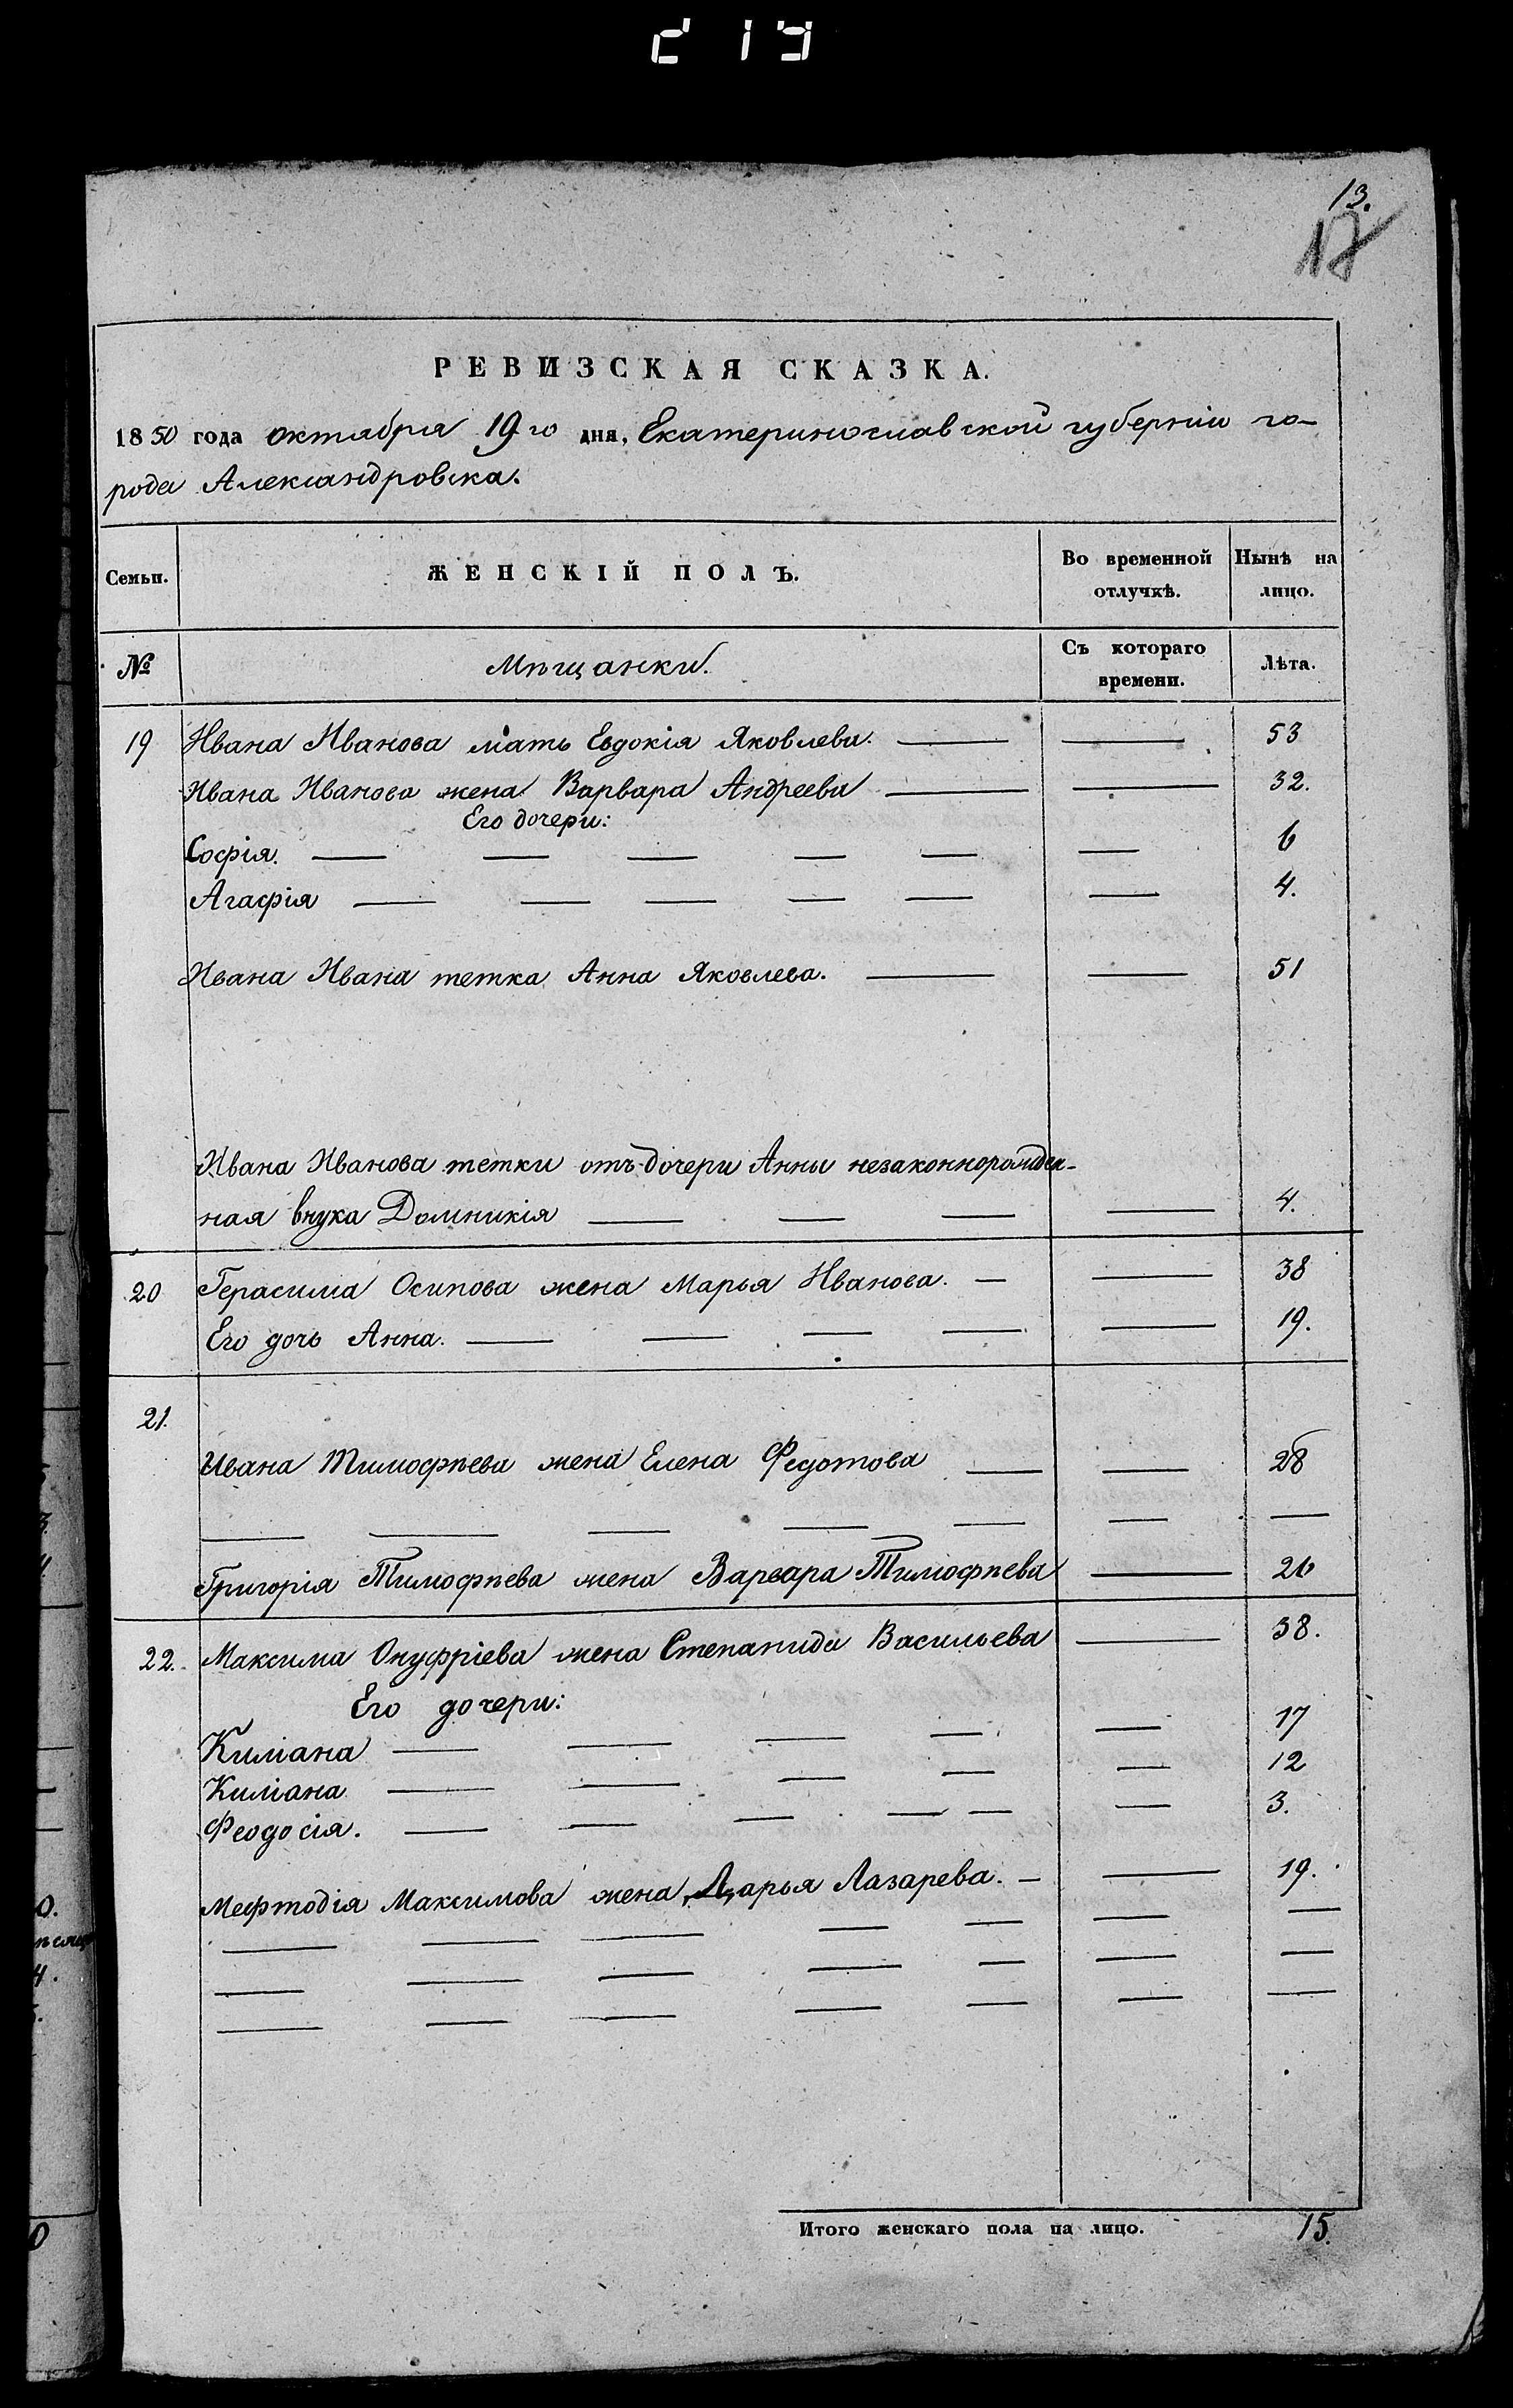 219
13.
17
РЕВИЗСКАЯ СКАЗКА.
1850 года октября 19го дня, Екатеринославской губерніи го-
рода Александровска.
Семьи. ЖЕНСКІЙ ПОЛЪ. Во временной отлучкѣ. Нынѣ на лицо.
№ Мѣщанки. Съ котораго времени. Лѣта.
19 Ивана Иванова мать Евдокія Яковлева. 53
Ивана Иванова жена Варвара Андреева 32.
Его дочери:
Софія. 6
Агафія 4.
Ивана Ивана тетка Анна Яковлева. 51
Ивана Иванова тетки отъ дочери Анны незаконнорожден-
ная внука Домникія 4.
20 Герасима Осипова жена Марья Иванова. 38
Его дочь Анна. 19.
21.
Ивана Тимофѣева жена Елена Федотова 28
Григорія Тимофѣева жена Варвара Тимофѣева 26
22. Максима Онуфріева жена Степанида Васильева 38.
Его дочери:
Киліана 17
Киліана 12
Феодосія. 3.
Мефтодія Максимова жена Дарья Лазарева. 19.
Итого женскаго пола на лицо. 15.